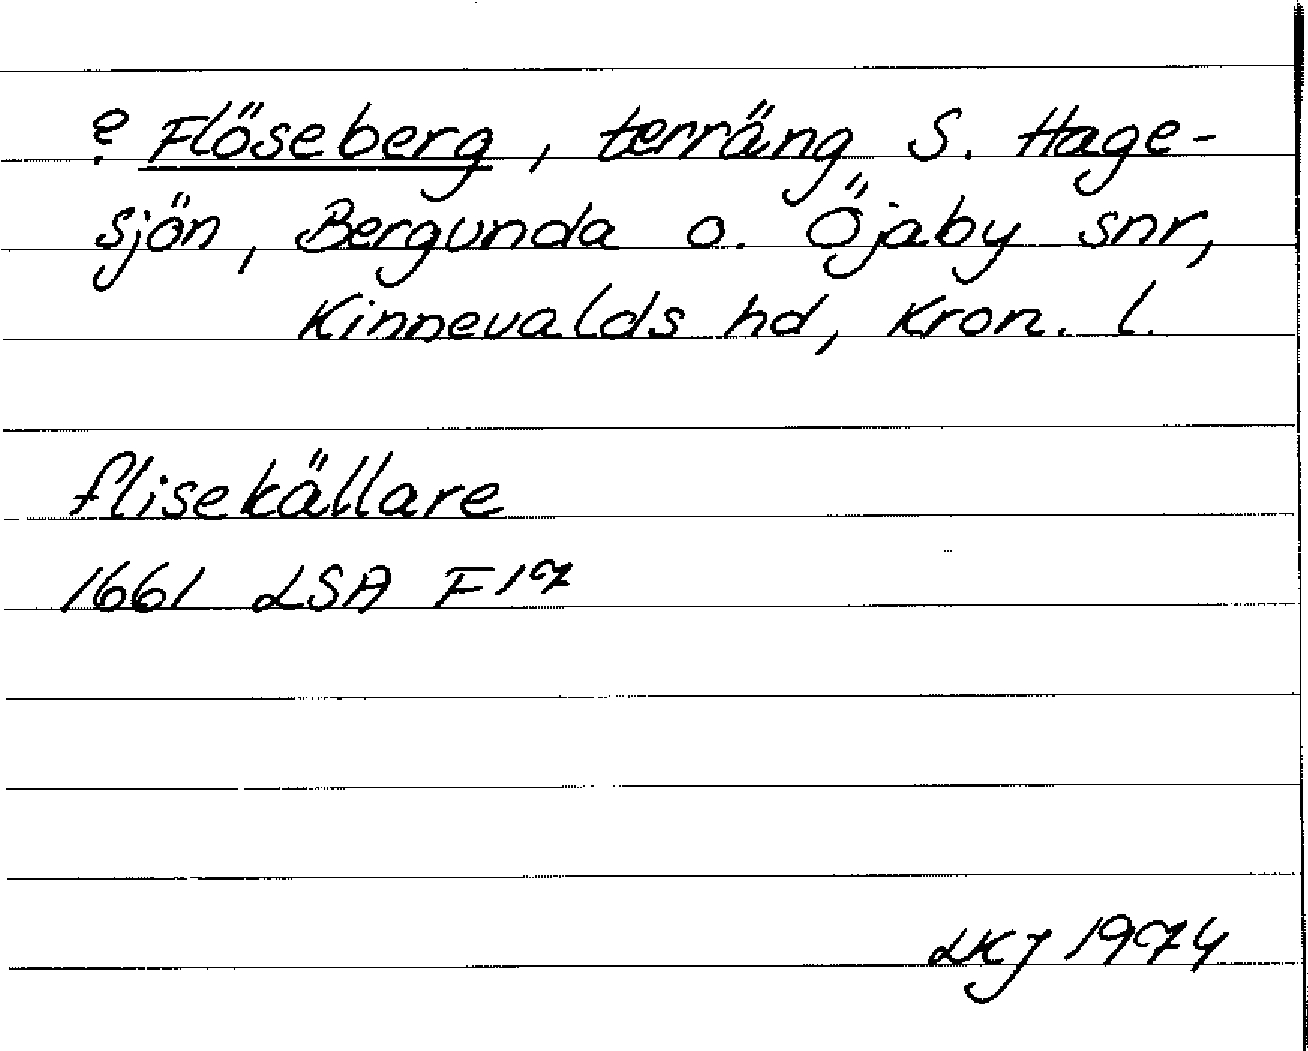 ? Flöseberg, terräng S. Hage-
sjön, Bergunda o. Öjaby snr,
Kinnevalds hd, Kron. l.
flisekällare
1661 LSA F 17
LKJ 1974